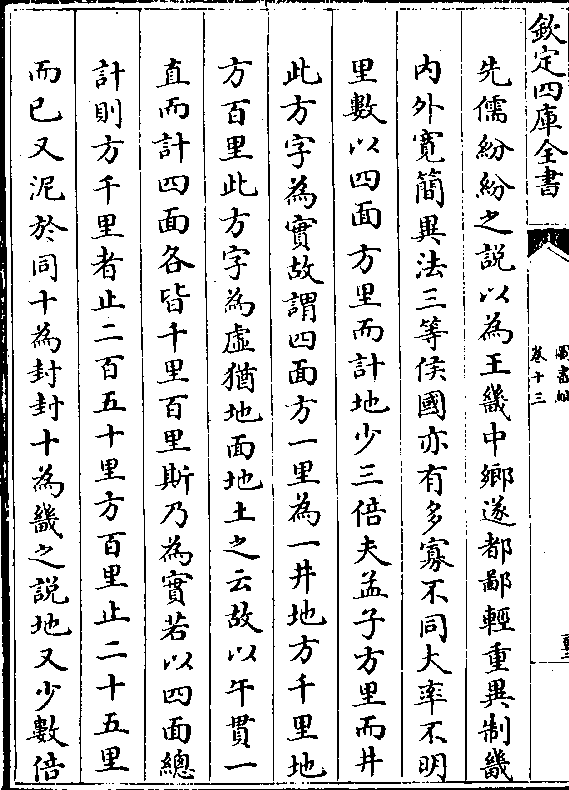 欽定四庫全書
卷十三
先儒紛紛之說以為王畿中鄉遂都鄙輕重異制畿
內外寬簡異法三等侯國亦有多寡不同大率不明
里數以四面方里而計地少三倍夫孟子方里而井
此方字為實故謂四面方一里為一井地方千里地
方百里此方字為虛猶地面地土之云故以午貫一
直而計四面各皆千里百里斯乃為實若以四面總
計則方千里者止二百五十里方百里止二十五里
而已又泥於同十為封封十為畿之說地又少數倍